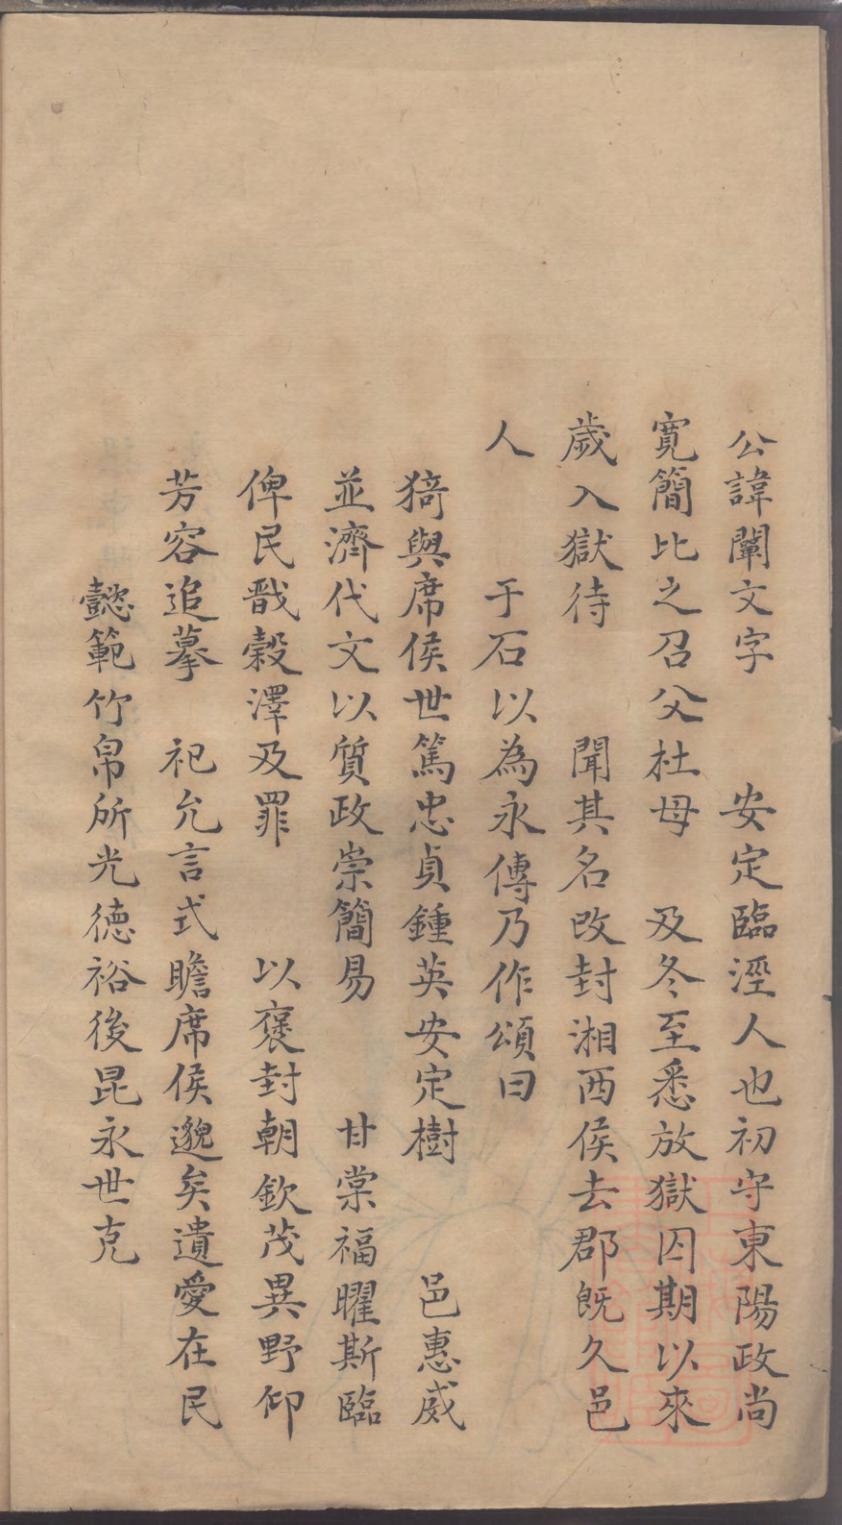 公諱闡文字　　安定臨涇人也初守東陽政尚
寬簡比之召父杜母　及冬至悉放獄囚期以來
歲入獄待　　聞其名改封湘西侯去郡既久邑
人　　于石以為永傳乃作頌曰
猗與席侯世篤忠貞鍾英安定樹　　邑惠威
並濟代文以質政崇簡易　　甘棠福曜斯臨
俾民戩穀澤及罪　　以褒封朝欽茂異野仰
芳容追摹　祀允言式瞻席侯邈矣遺愛在民
懿範竹帛所光德裕後昆永世克